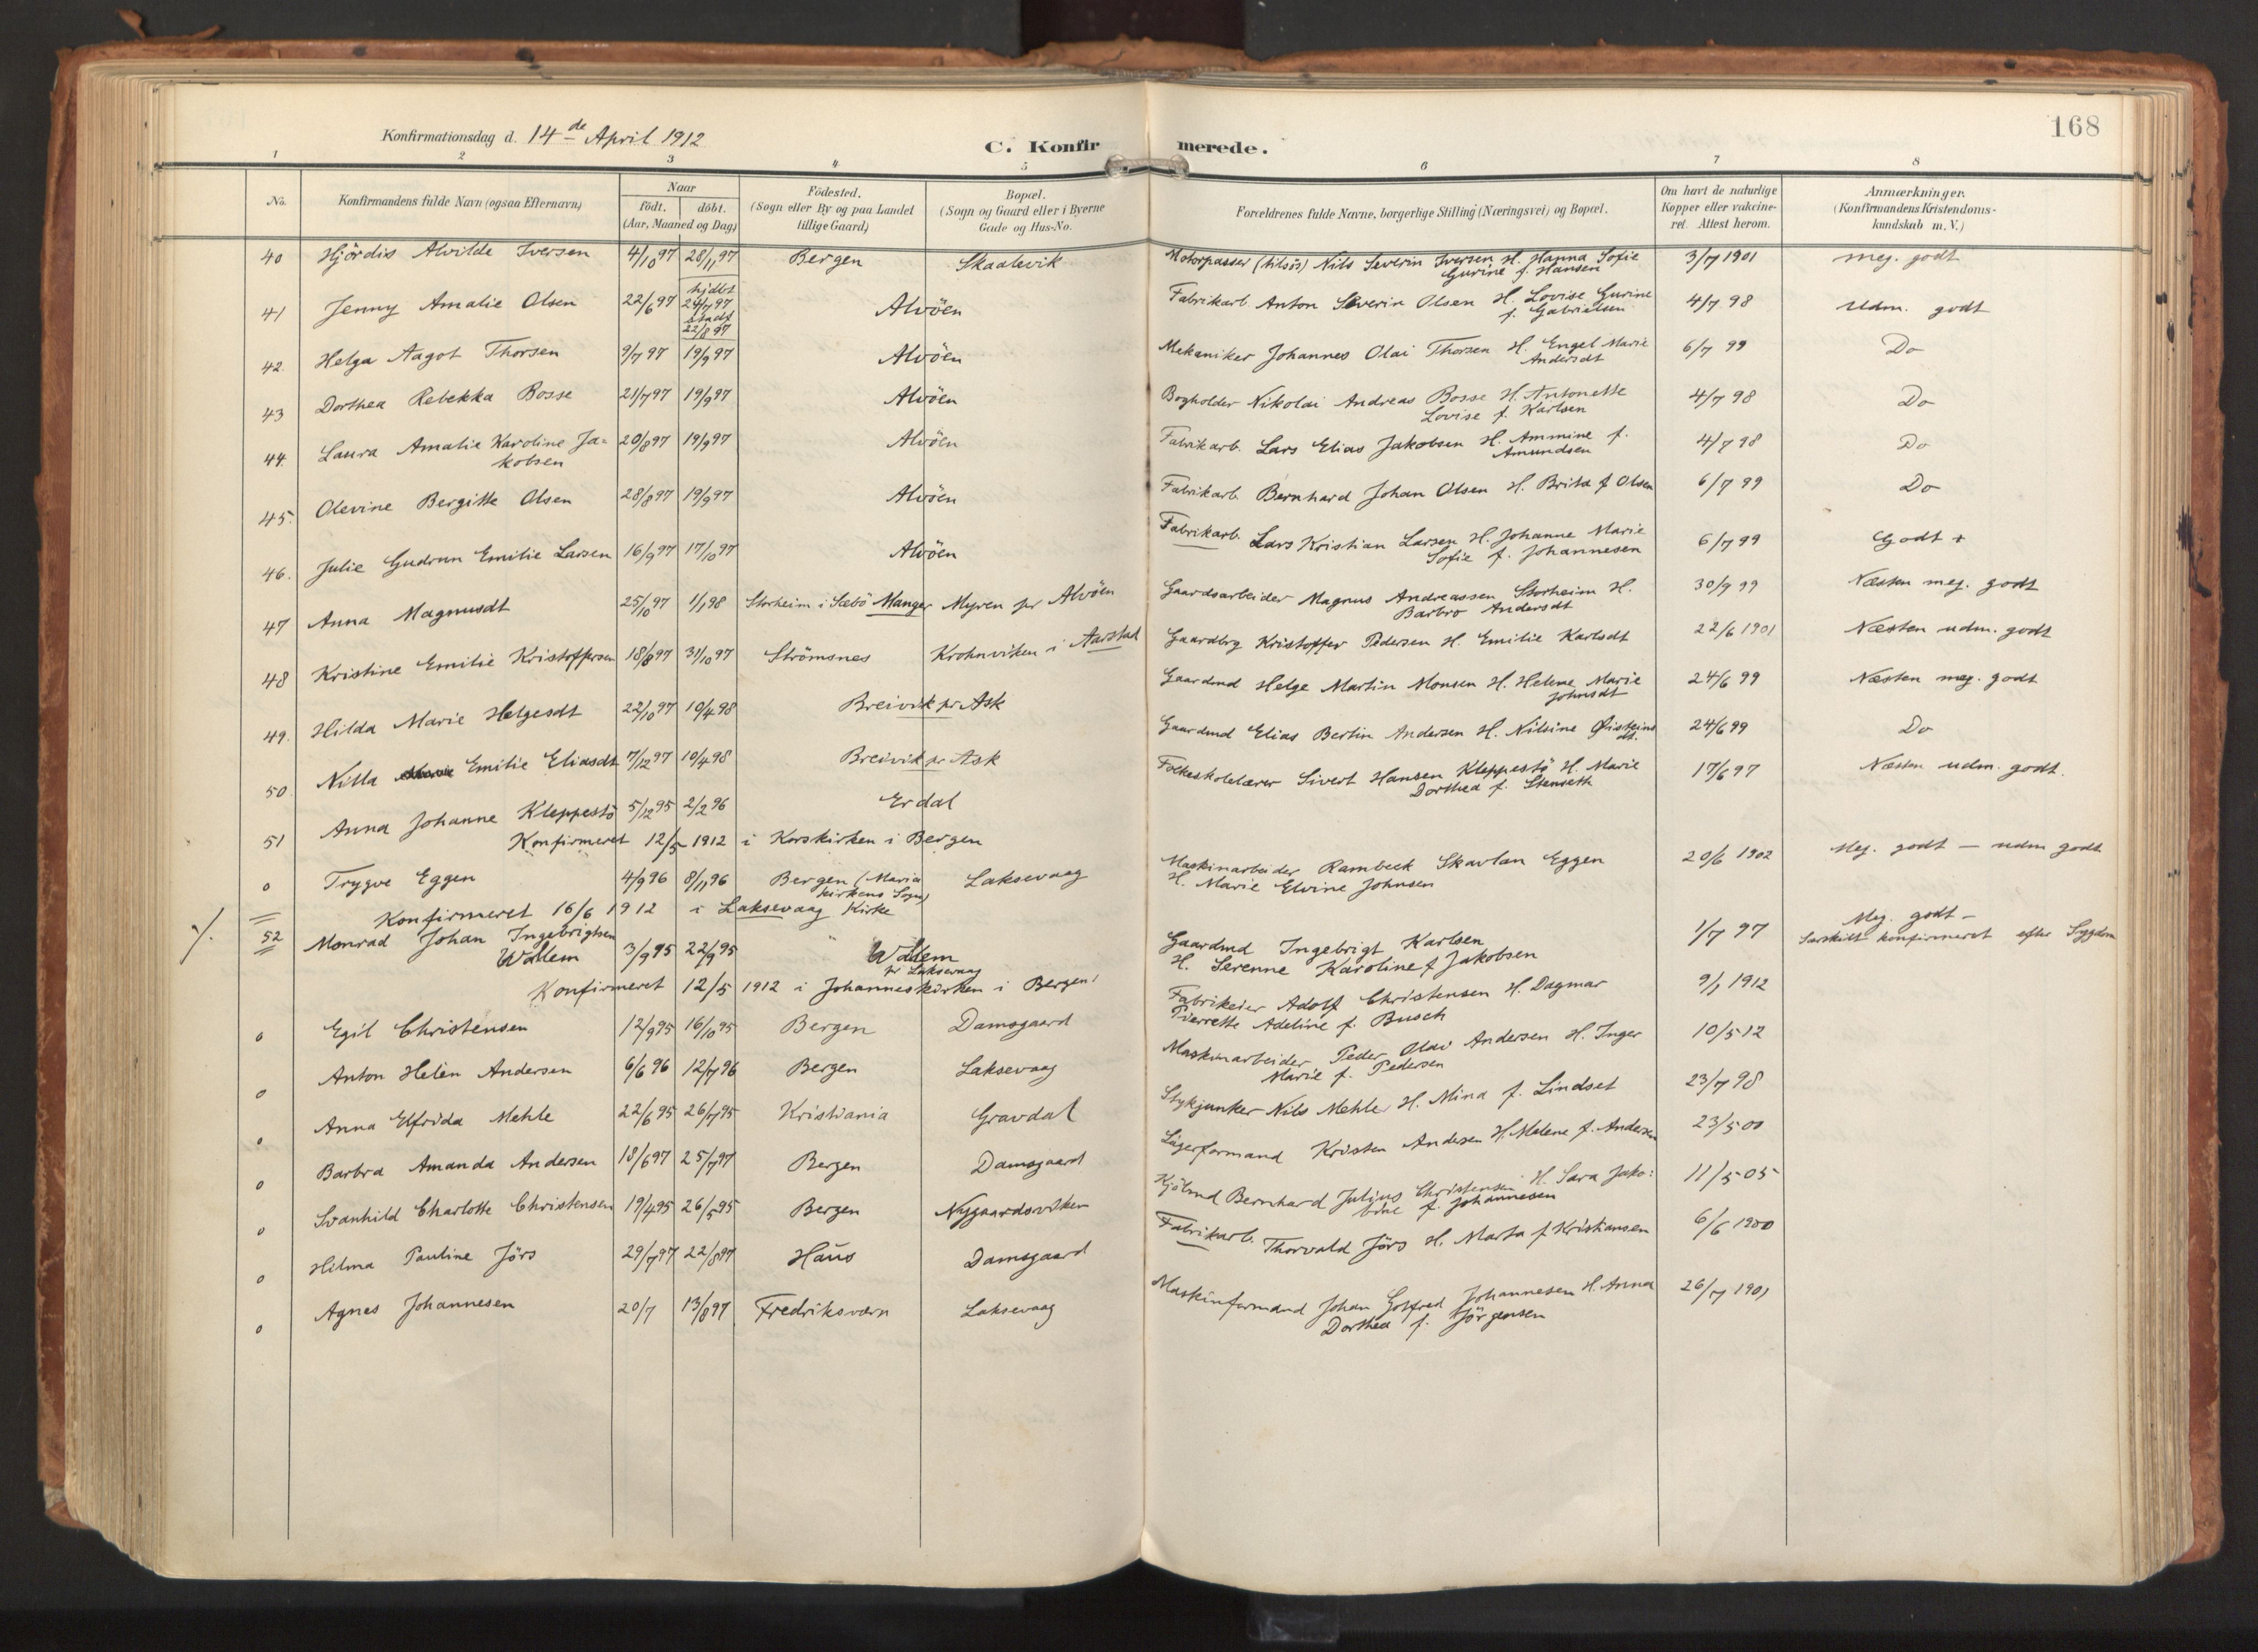 168
Konfirmationsdag d. 14de April 1912
C. Konfirmerede.
1 2 3 4 5 6 7 8
No. Konfirmandens fulde Navn (ogsaa Efternavn) Naar födt. döbt. (Aar, Maaned og Dag) Födested. (Sogn eller By og paa Landet tillige Gaard) Bopæl. (Sogn og Gaard eller i Byerne Gade og Hus-No. Forældrenes fulde Navne, borgerlige Stilling (Næringsvei) og Bopæl. Om havt de naturlige Kopper eller vakcineret. Attest herom. Anmærkninger. (Konfirmandens Kristendomskundskab m. V.)
40 Hjördis Alvilde Iversen 4/10 97 28/11 97 Bergen Skaalevik Motorpasser Nils Severin Iversen H. Hanna Sofie 3/7 1901 meg. godt
Gurine f. Hansen
41 Jenny Amalie Olsen 22/6 97 hjdbt 24/7 97 stadf 22/8 97 Alvöen Fabrikarb. Anton Severin Olsen H. Lovise Gurine 4/7 98 Udm. godt
f. Gabrielsen
42. Helga Aagot Thorsen 9/7 97 19/9 97 Alvöen Mekaniker Johannes Olai Thorsen H. Engel Marie 6/7 99 Do
Andersdt
43 Dorthea Rebekka Bosse 21/7 97 19/9 97 Alvöen Bogholder Nikolai Andreas Bosse H. Antonette 4/7 98 Do
Lovise f. Karlsen
44. Laura Amalie Karoline Ja= 20/8 97 19/9 97 Alvöen Fabrikarb. Lars Elias Jakobsen H. Ammine f. 4/7 98 Do
kobsen Amundsen
45. Olevine Bergitte Olsen 28/8 97 19/9 97 Alvöen Fabrikarb. Bernhard Johan Olsen H. Brita f Olsen 6/7 99 Do
46. Julie Gudrun Emilie Larsen 16/9 97 17/10 97 Alvöen Fabrikarb. Lars Kristian Larsen H. Johanne Marie 6/7 99 Godt +
Sofie f. Johannesen
47 Anna Magnusdt 25/10 97 1/1 98 Storheim i Sæbö Manger Myren pr Alvöen Gaardsarbeider Magnus Andreassen Storheim H. 30/9 99 Næsten meg. godt
Barbro Andersdt
48 Kristine Emilie Kristoffersen 18/8 97 31/10 97 Strömsnes Krohnviken i Aarstad Gaardbrg Kristoffer Pedersen H. Emilie Karlsdt 22/6 1901 Næsten udm. godt
49. Hilda Marie Helgesdt 22/10 97 10/4 98 Breivik pr Ask Gaardmd Helge Martin Monsen H. Helene Marie 24/6 99 Næsten meg. godt
Johnsdt
50 Nilla Emilie Eliasdt 7/12 97 10/4 98 Breivik pr Ask Gaardmd Elias Bertin Andersen H. Nilsine Øisteins 24/6 99 Do
dt.
51 Anna Johanne Kleppestö 5/12 95 2/2 96 Erdal Folkeskolelærer Sivert Hansen Kleppestö H. Marie 17/6 97 Næsten udm. godt.
Dorthea f. Stenseth
Konfirmeret 12/5 1912 i Korskirken i Bergen
o Trygve Eggen 4/9 96 8/11 96 Bergen (Maria Laksevaag Maskinarbeider Rambeck Skavlan Eggen 20/6 1902 Meg. godt — udm godt
kirkens Sogn) H. Marie Elvine Johnsen
Konfirmeret 16/6 1912 i Laksevaag Kirke
52 Monrad Johan Ingebrigtsen Wallem 3/9 95 22/9 95 Wallem pr Laksevaag Gaardmd Ingebrigt Karlsen 1/7 97 Meg. godt —
H. Serenne Karoline f Jakobsen Særskilt konfirmeret efter Sygdom
Konfirmeret 12/5 1912 i Johanneskirken i Bergen
o Egil Christensen 12/9 95 16/10 95 Bergen Damsgaard Fabrikeier Adolf Christensen H. Dagmar 9/1 1912
Pierrette Adeline f. Busch
o Anton Helén Andersen 6/6 96 12/7 96 Bergen Laksevaag Maskinarbeider Peder Olai Andersen H. Inger 10/5 12
Marie f. Pedersen
o Anna Elfrida Mehle 22/6 95 26/7 95 Kristiania Gravdal Stykjunker Nils Mehle H. Mina f. Lindset 23/7 98
o Barbra Amanda Andersen 18/6 97 25/7 97 Bergen Damsgaard Lagerformand Kristen Andersen H. Malene f. Andersen 23/5 00
o Svanhild Charlotte Christensen 19/4 95 26/5 95 Bergen Nygaardsviken Kjölmd Bernhard Julius Christensen H. Sara Jako: 11/5 05
bine f. Johannesen
o Hilma Pauline Jörs 29/7 97 22/8 97 Haus Damsgaard Fabrikarb. Thorvald Jörs H. Marta f Kristiansen 6/6 1900
o Agnes Johannesen 20/7 13/8 97 Fredriksværn Laksevaag Maskinformand Johan Gotfred Johannesen H. Anna 26/7 1901
Dorthea f. Jörgensen